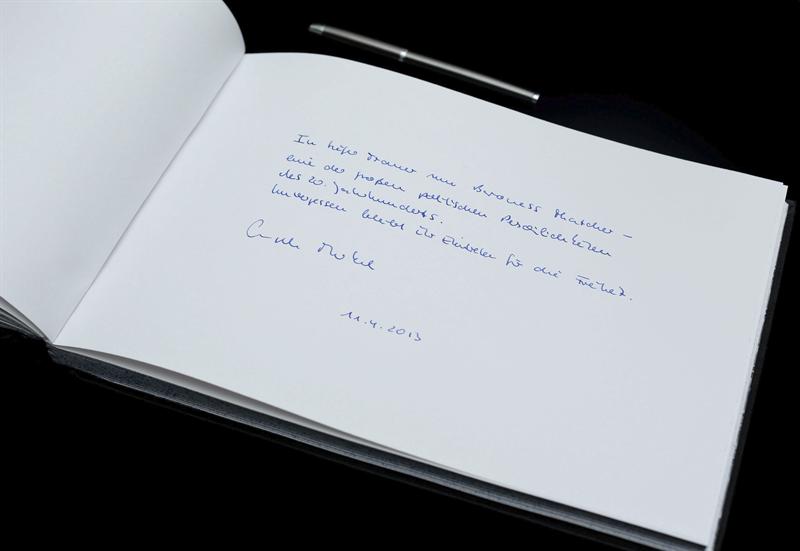 In tiefer Trauer um Baroness Thatcher –
eine der großen politischen Persönlichkeiten
des 20. Jahrhunderts.
Unvergessen bleibt ihr Eintreten für die Freiheit.
Angela Merkel
11.4.2013